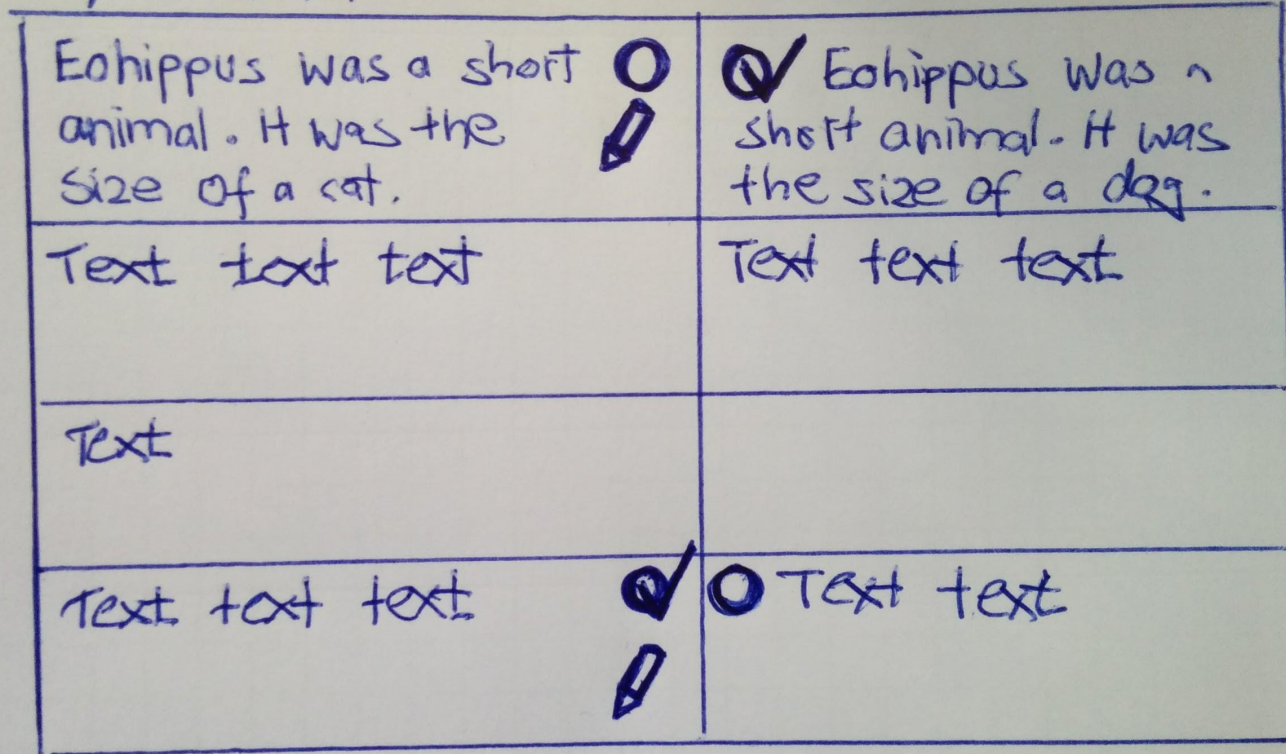 Eohippus was a short
animal. It was the
size of a cat.
Eohippus was a
short animal. It was
the size of a dog.
Text text text
Text text text
Text
Text text text
Text text